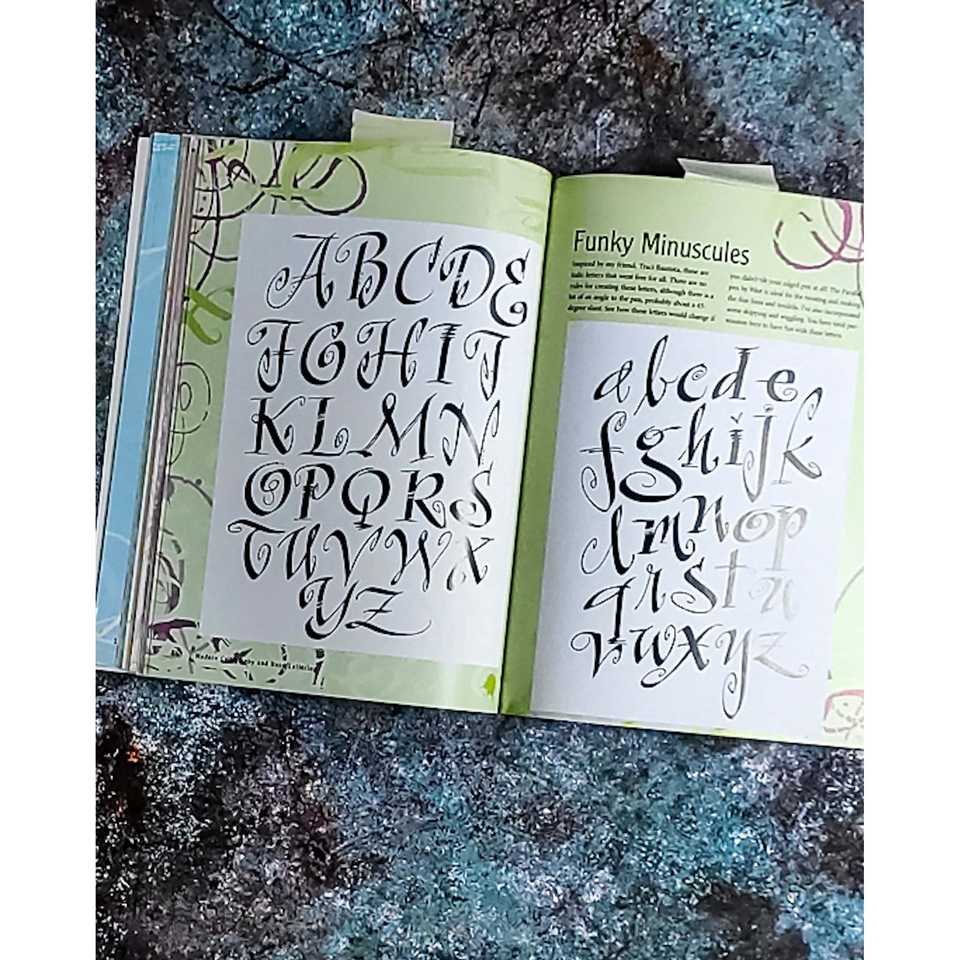 A B C D E
F G H I J
K L M N
O P Q R S
T U V W X
Y Z
Modern Calligraphy and Hand Lettering
Funky Minuscules
Inspired by my friend, Traci Bautista, these are
italic letters that went free for all. There are no
rules for creating these letters, although there is a
bit of an angle to the pen, probably about a 45-
degree slant. See how these letters would change if
you didn't use your edged pen at all! The Parallel
pen by Pilot is ideal for the twisting and making
the fine lines and tendrils. I've also incorporated
some skipping and wiggling. You have total per-
mission here to have fun with these letters.
a b c d e
f g h i j k
l m n o p
q r s t u
v w x y z